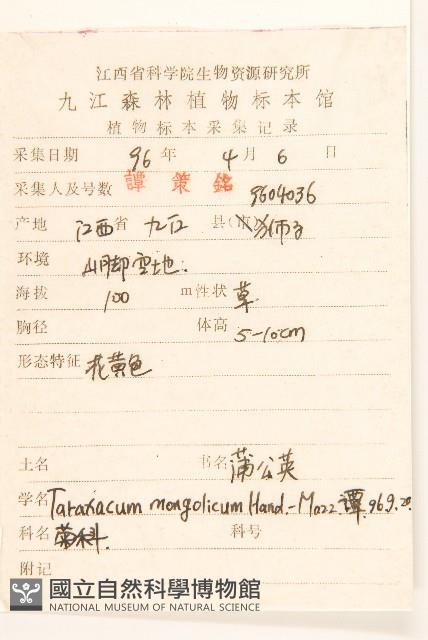 江西省科学院生物资源研究所
九江森林植物标本馆
植物标本采集记录
采集日期 96 年 4 月 6 日
采集人及号数 譚策銘 9604036
产地 江西 省 九江 县(市) 狮子
环境 山脚空地.
海拔 100 m 性状 草.
胸径 体高 5-10cm
形态特征 花黄色
土名 书名 蒲公英
学名 Taraxacum mongolicum Hand.-Mazz. 譚. 96.9.20
科名 菊科. 科号
附记
國立自然科學博物館
NATIONAL MUSEUM OF NATURAL SCIENCE